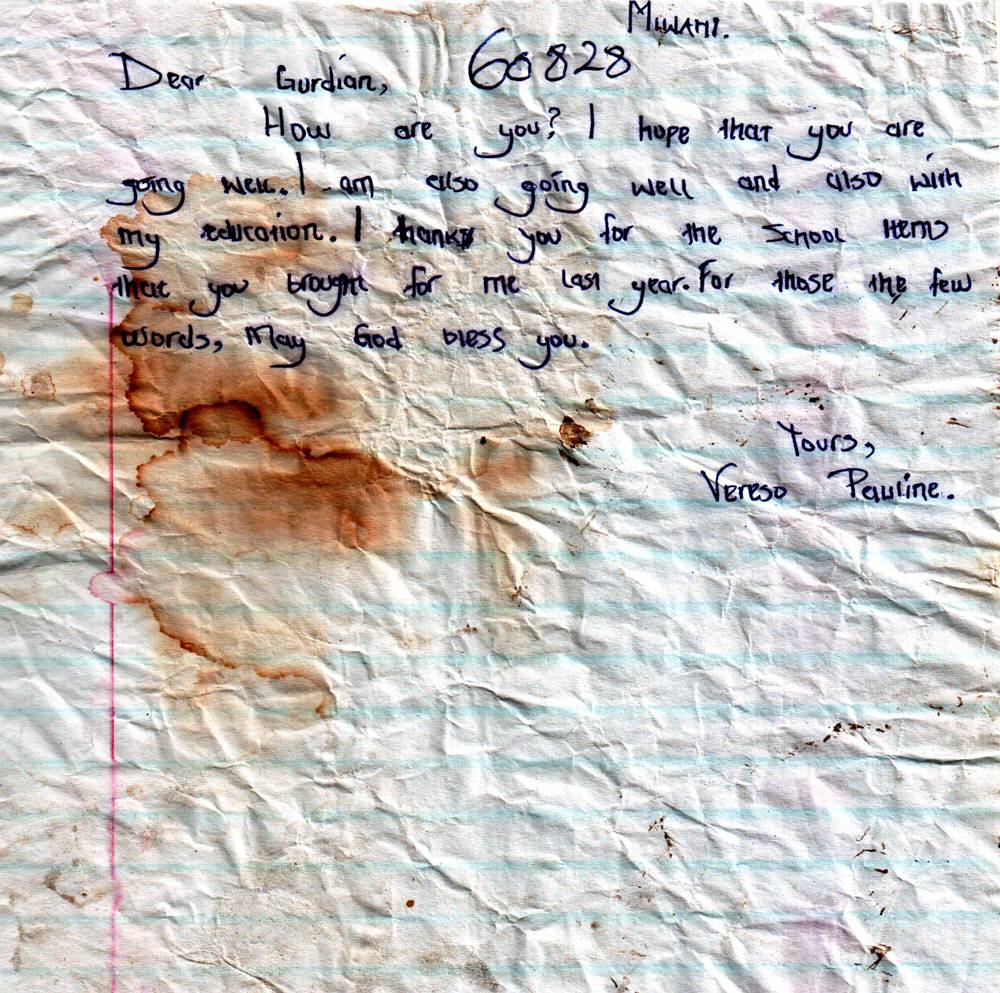 MIWANI.
60828
Dear Gurdian,
How are you? I hope that you are
going well. I am also going well and also with
my education. I thanks you for the School Items
that you brought for me last year. For those the few
words, May God bless you.
Yours,
Vereso Pauline.